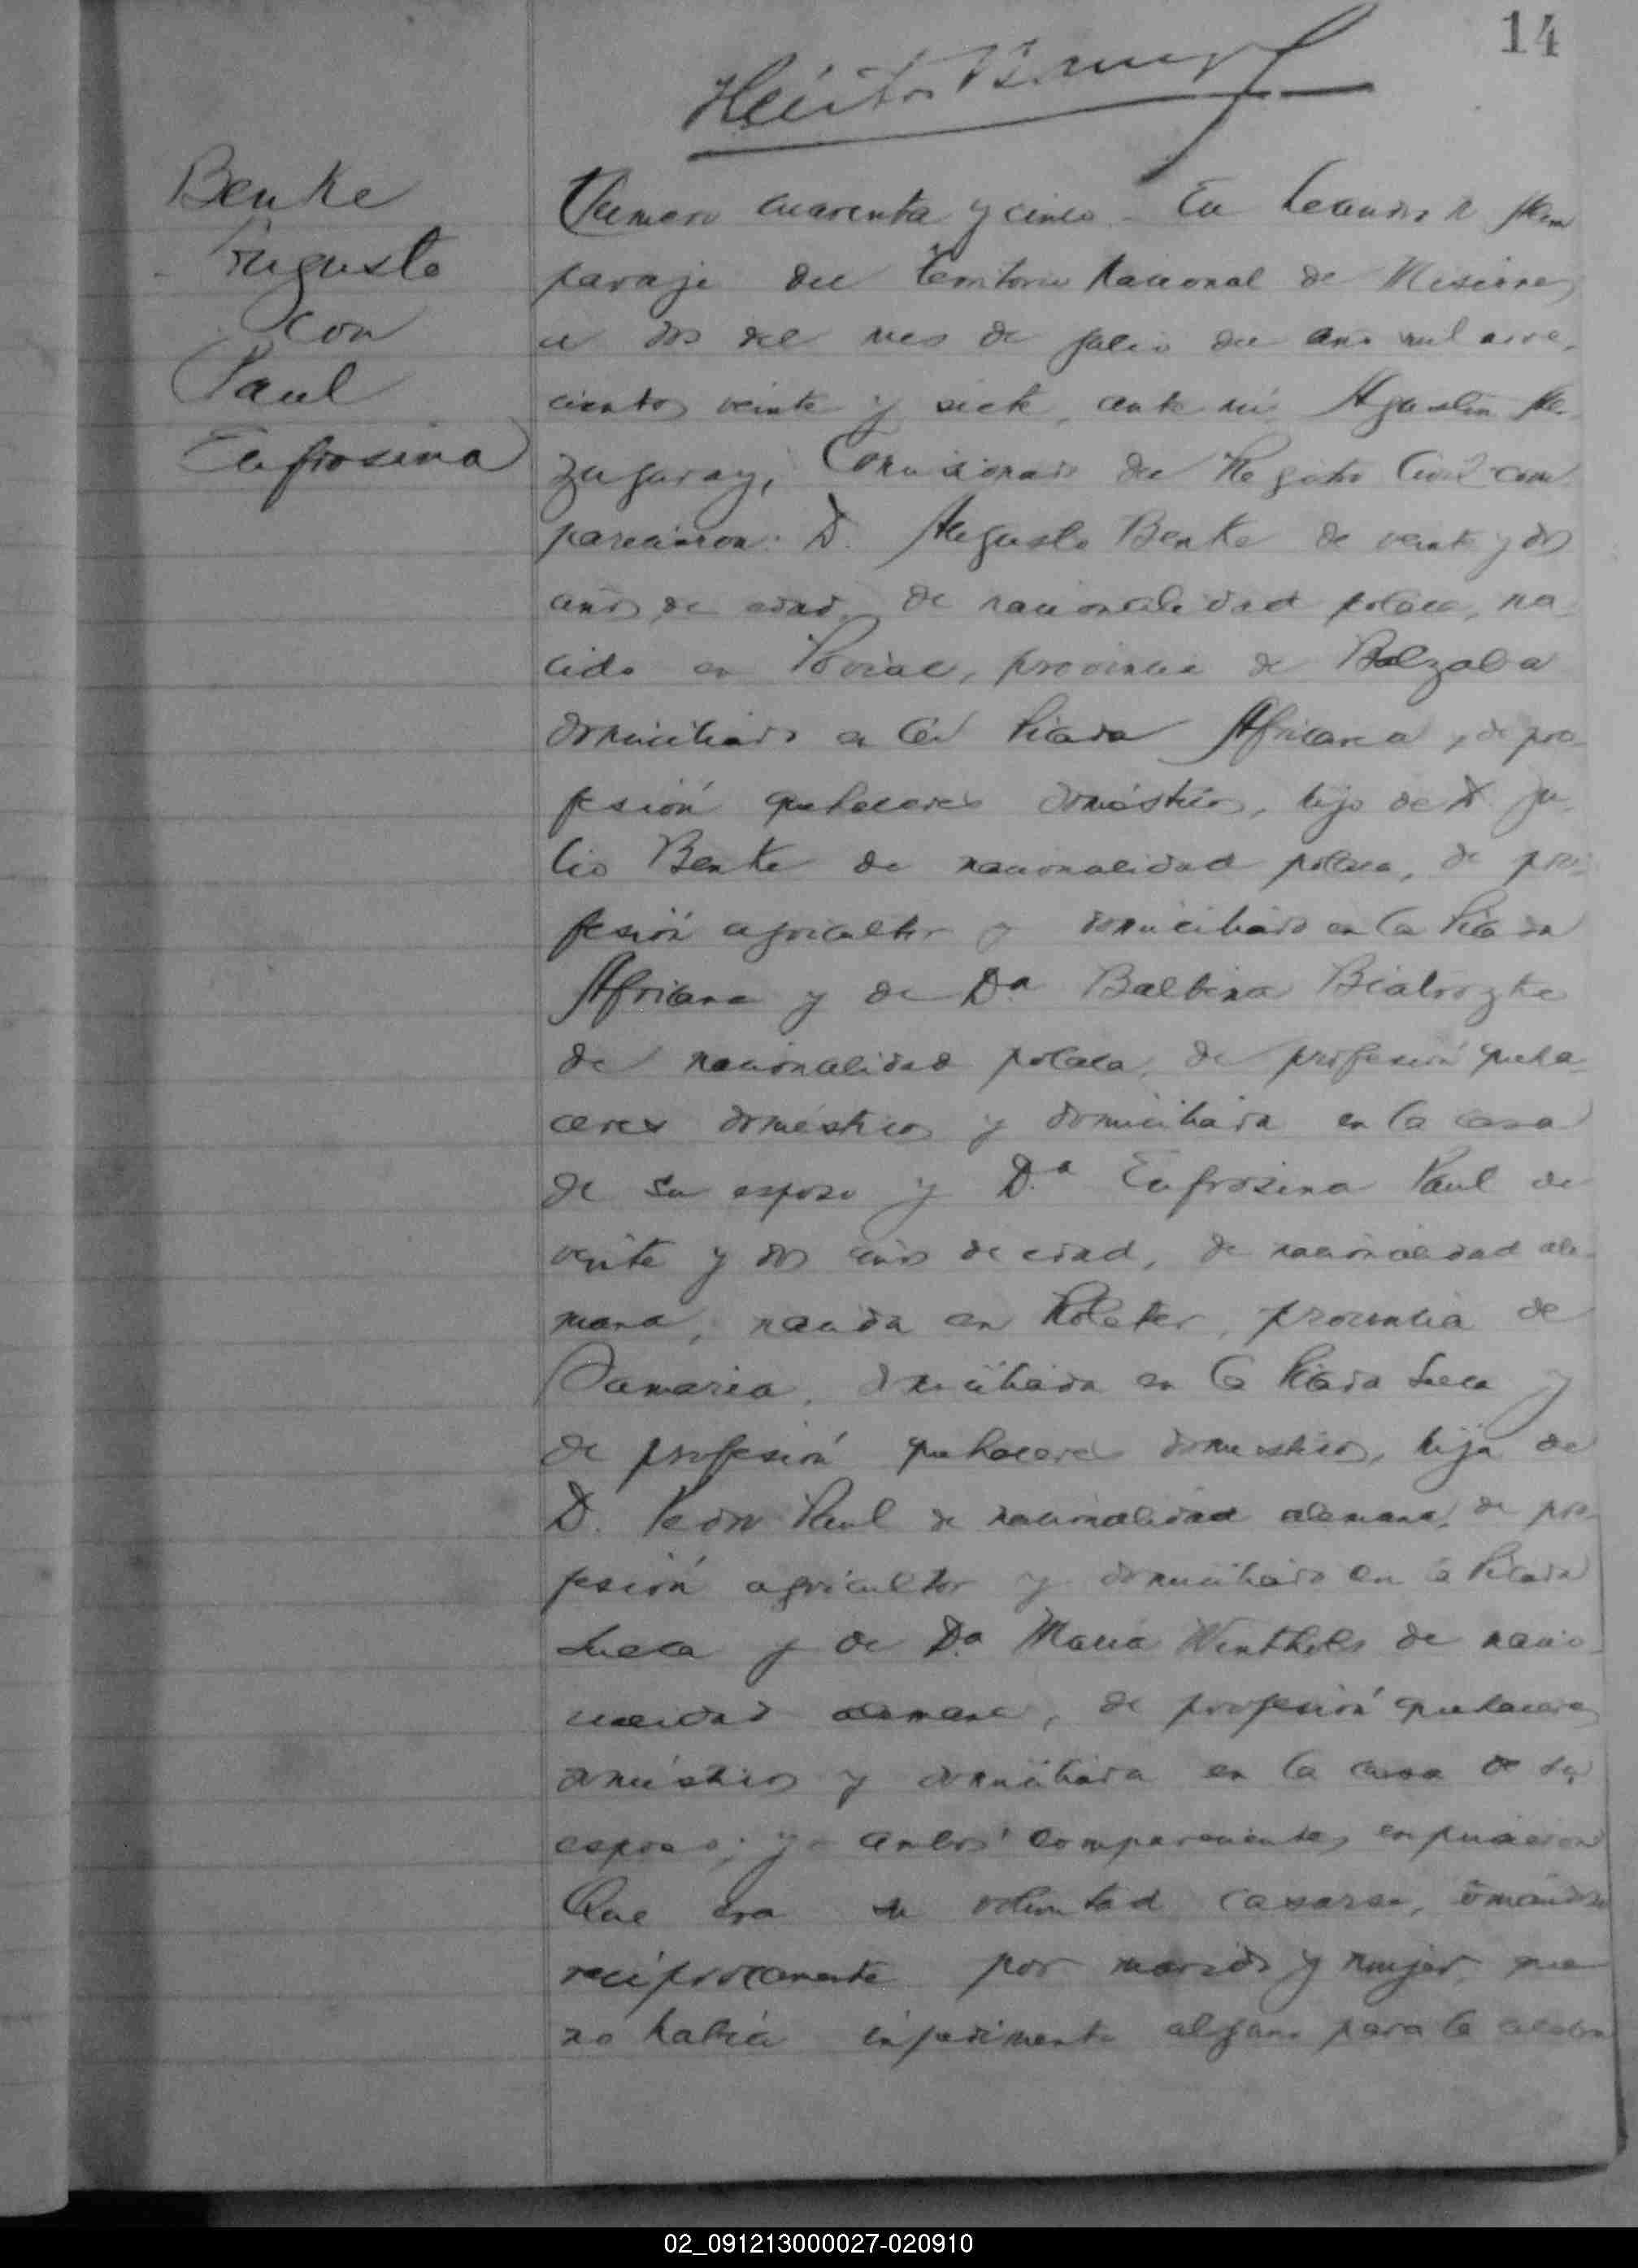 14
Héctor
Benke
Augusto
con
Paul
Eufrosina
Número cuarenta y cinco. En Leandro N. Alem
paraje del Territorio Nacional de Misiones
a dos del mes de Julio del año mil nove-
cientos veinte y siete, ante mí Agustín
Comisionado del Registro Civil com
parecieron: D. Augusto Benke de veinte y dos
años de edad, de nacionalidad polaca, na-
cido en, provincia de
domiciliado en la Picada Africana, de pro-
fesión quehaceres domésticos, hijo de D. Ju-
lio Benke de nacionalidad polaca, de pro-
fesión agricultor y domiciliado en la Picada
Africana y de Da. Balbina
de nacionalidad polaca, de profesión queha-
ceres domésticos y domiciliada en la casa
de su esposo y D.a Eufrosina Paul de
veinte y dos años de edad, de nacionalidad ale-
mana, nacida en, provincia de
domiciliada en la Picada Sueca y
de profesión quehaceres domésticos, hija de
D. Paul de nacionalidad alemana, de pro-
fesión agricultor y domiciliado en la Picada
Sueca y de Da. María de nacio-
nalidad alemana, de profesión quehaceres
domésticos y domiciliada en la casa de su
esposo; y ambos comparecientes
Que era su voluntad casarse, tomándose
recíprocamente por marido y mujer, que
no había impedimento alguno para la celebra
02_091213000027-020910